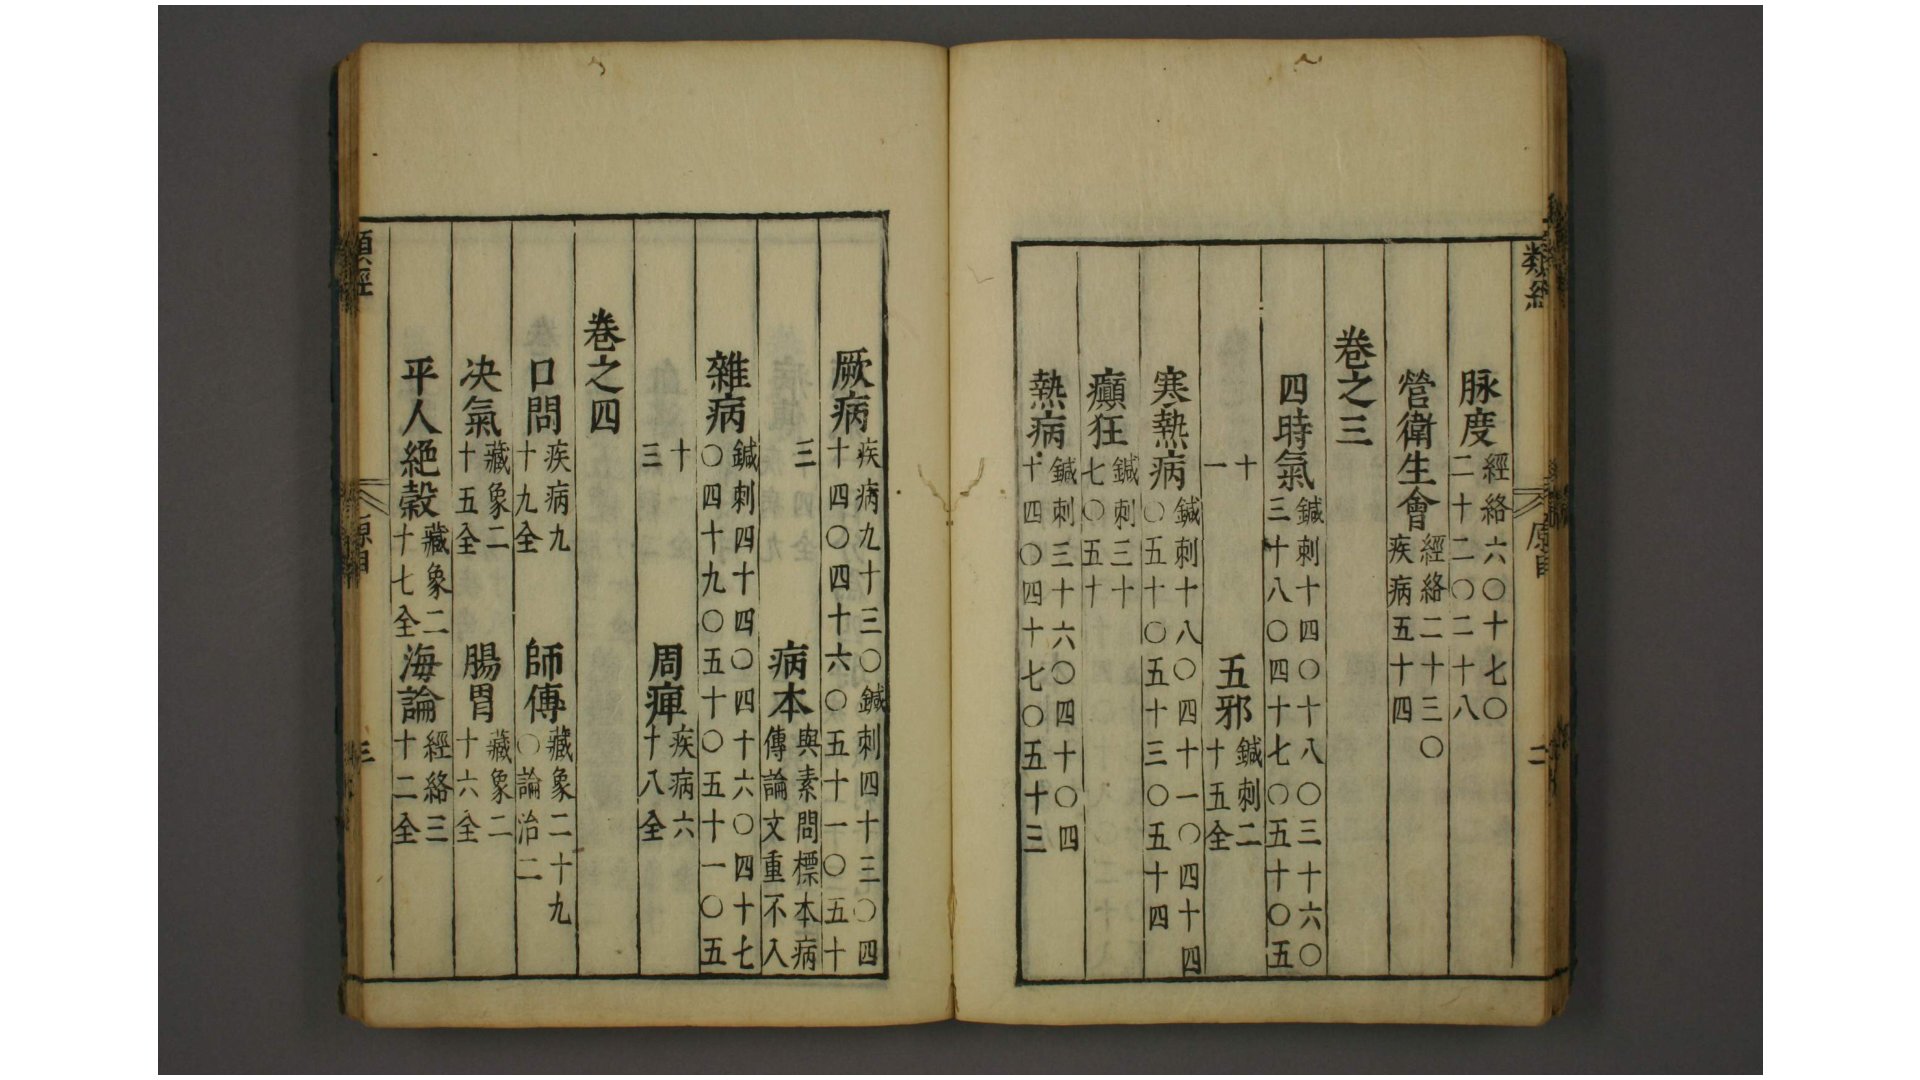 類經 原目 二
脉度 經絡六〇十七〇二十二〇二十八
營衛生會 經絡二十三〇疾病五十四
卷之三
四時氣 鍼刺十四〇十八〇三十六〇三十八〇四十七〇五十〇五
十一 五邪 鍼刺二十五全
寒熱病 鍼刺十八〇四十一〇四十四〇五十〇五十三〇五十四
癲狂 鍼刺三十七〇五十
熱病 鍼刺三十六〇四十〇四十四〇四十七〇五十三
厥病 疾病九十三〇鍼刺四十三〇四十四〇四十六〇五十一〇五十
三 病本 與素問標本病傳論文重不入
雜病 鍼刺四十四〇四十六〇四十七〇四十九〇五十〇五十一〇五
十三 周痺 疾病六十八全
卷之四
口問 疾病九十九全 師傳 藏象二十九〇論治二
决氣 藏象二十五全 腸胃 藏象二十六全
平人絕穀 藏象二十七全 海論 經絡三十二全
類經 原目 三